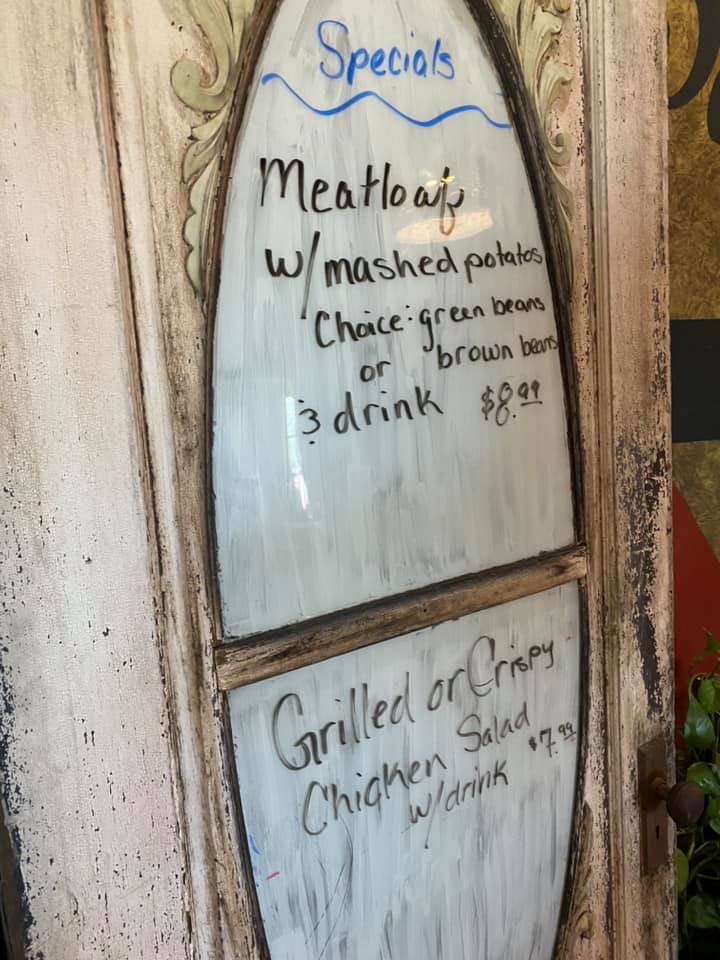 Specials
Meatloaf
w/mashed potatos
Choice: green beans
or brown beans
& drink $8.99
Grilled or Crispy
Chicken Salad
w/drink $7.99